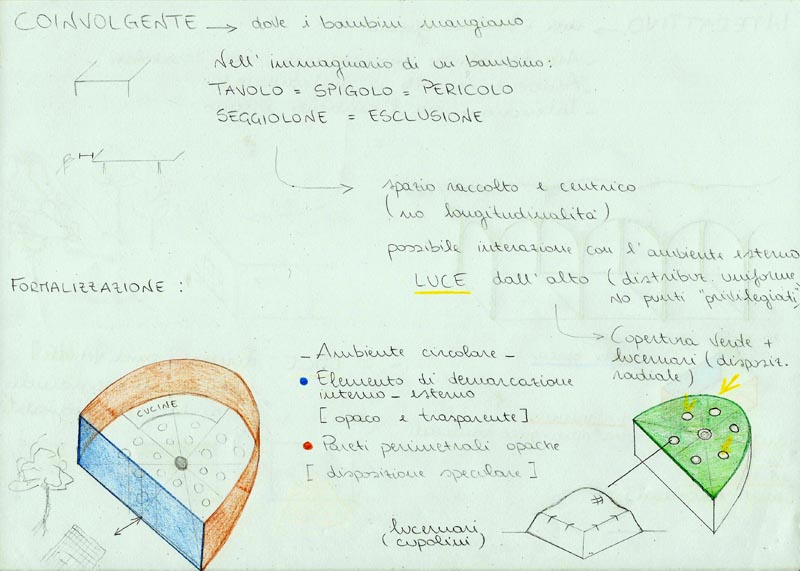 COINVOLGENTE → dove i bambini mangiano
Nell'immaginario di un bambino:
TAVOLO = SPIGOLO = PERICOLO
SEGGIOLONE = ESCLUSIONE
spazio raccolto e centrico
(no longitudinalità)
possibile interazione con l'ambiente esterno
LUCE dall'alto (distribuz. uniforme
NO punti "privilegiati")
Copertura verde +
lucernari (disposiz.
radiale)
FORMALIZZAZIONE :
- Ambiente circolare -
Elemento di demarcazione
interno - esterno
[ opaco e trasparente ]
Pareti perimetrali opache
[ disposizione speculare ]
CUCINE
lucernari
(cupolini)